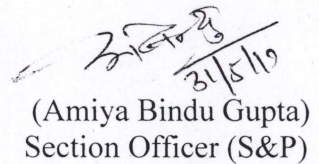 31/5/19
(Amiya Bindu Gupta)
Section Officer (S&P)